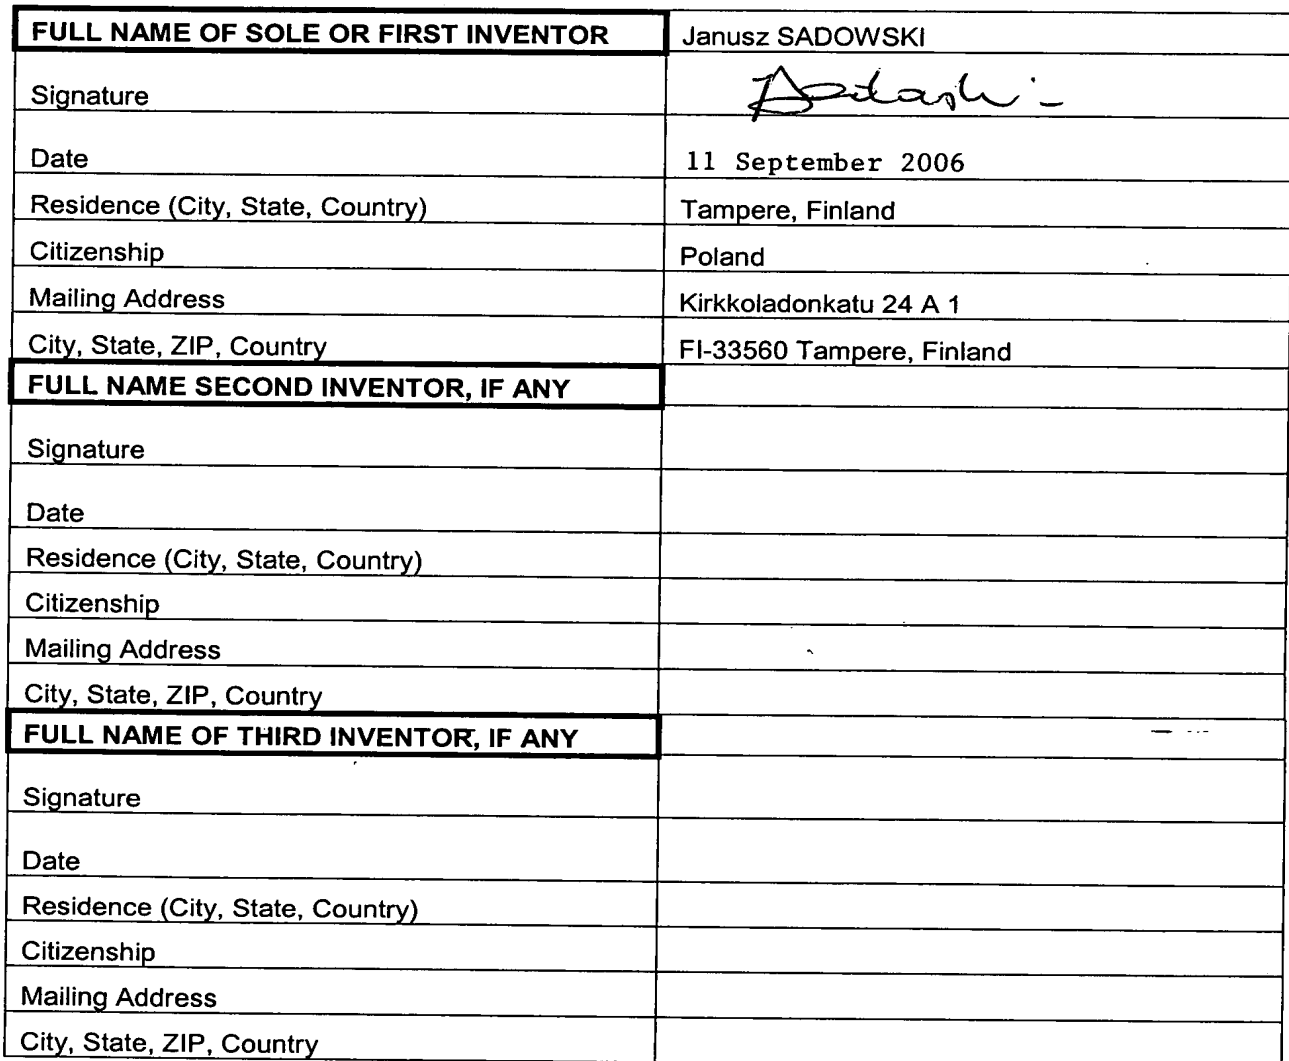 FULL NAME OF SOLE OR FIRST INVENTOR Janusz SADOWSKI
Signature
Date 11 September 2006
Residence (City, State, Country) Tampere, Finland
Citizenship Poland
Mailing Address Kirkkoladonkatu 24 A 1
City, State, ZIP, Country FI-33560 Tampere, Finland
FULL NAME SECOND INVENTOR, IF ANY
Signature
Date
Residence (City, State, Country)
Citizenship
Mailing Address
City, State, ZIP, Country
FULL NAME OF THIRD INVENTOR, IF ANY
Signature
Date
Residence (City, State, Country)
Citizenship
Mailing Address
City, State, ZIP, Country